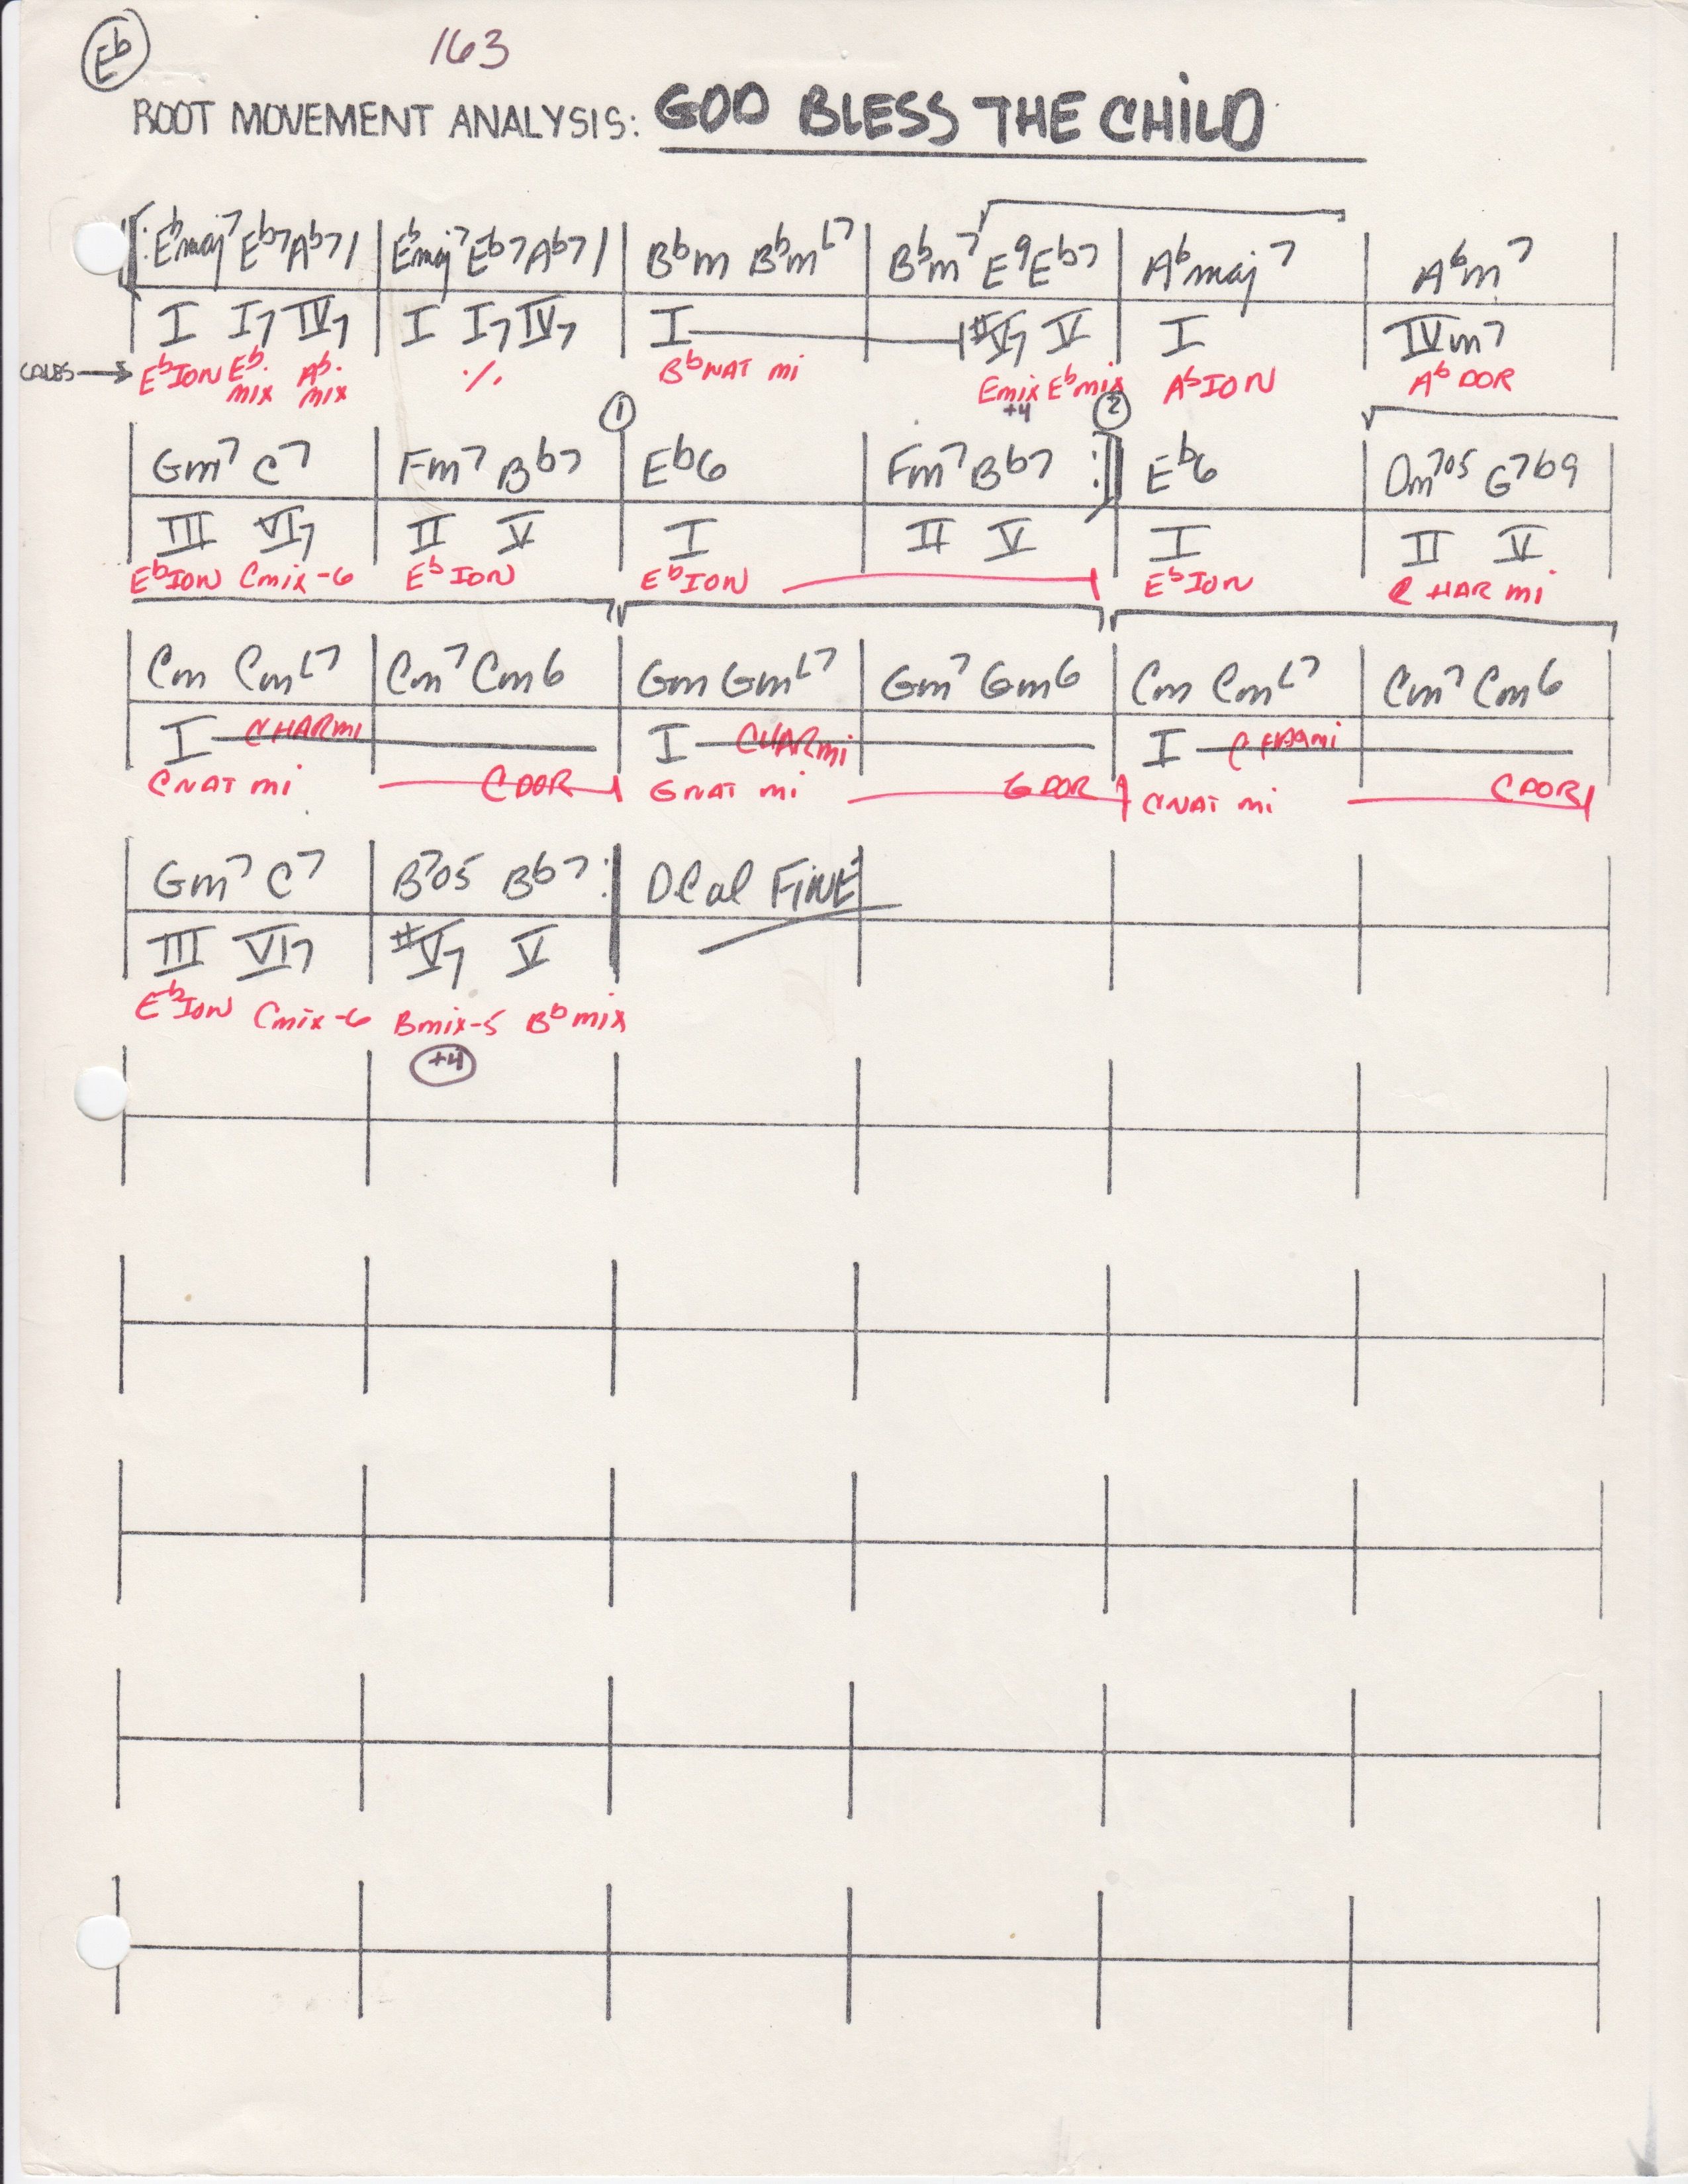 Eb
163
ROOT MOVEMENT ANALYSIS: GOD BLESS THE CHILD
Ebmaj7 Eb7 Ab7 / Ebmaj7 Eb7 Ab7 / Bbm BbmL7 Bbm7 E9 Eb7 Abmaj7 Abm7
I I7 IV7 I I7 IV7 I #V7 V I IVm7
CALES → Eb ION Eb. mix Ab. mix ٪ Bb NAT mi Emix Eb mix Ab ION Ab DOR
+4
1 2
Gm7 C7 Fm7 Bb7 Eb6 Fm7 Bb7 :|| Eb6 Dm7o5 G7b9
III VI7 II V I II V I II V
Eb ION Cmix-6 Eb ION Eb ION Eb ION C HAR mi
Cm CmL7 Cm7 Cm6 Gm GmL7 Gm7 Gm6 Cm CmL7 Cm7 Cm6
I CHARmi I CHARmi I CHARmi
CNAT mi CDOR GNAT mi GDOR CNAT mi CDOR
Gm7 C7 B7o5 Bb7 : DC al FINE
III VI7 #V7 V
Eb ION Cmix-6 Bmix-5 Bb mix
+4